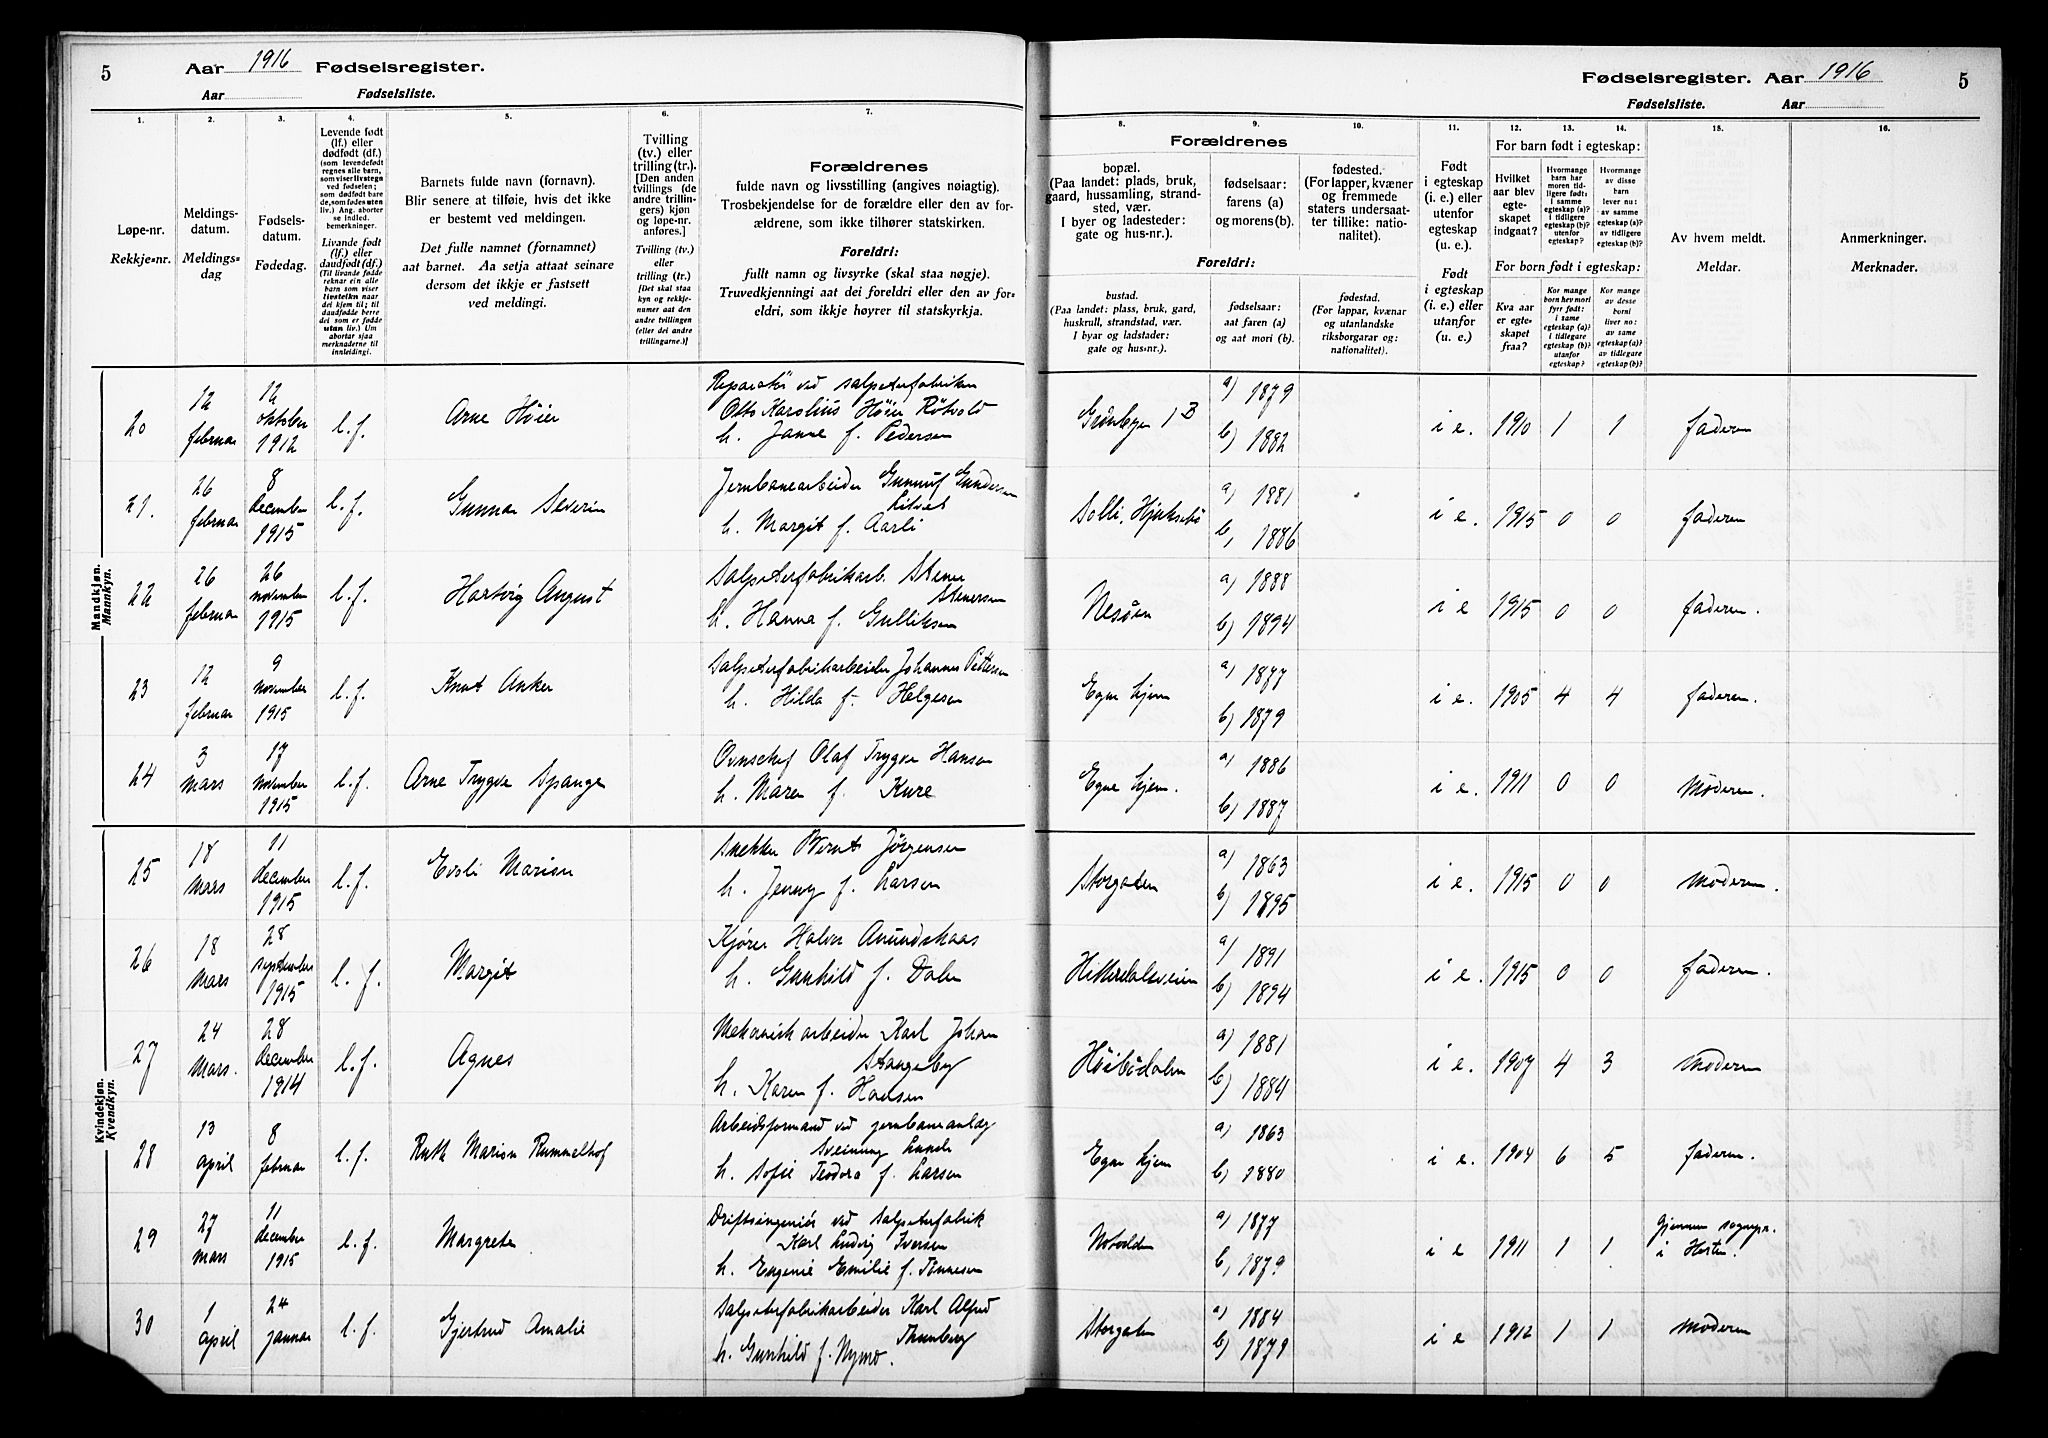 5 Aar 1916 Fødselsregister.
Aar Fødselsliste.
Fødselsregister. Aar 1916 5
Fødselsliste. Aar
1. 2. 3. 4. 5. 6. 7.
Løpe-nr.
Rekkje-nr.
Meldings-
datum.
Meldings-
dag
Fødsels-
datum.
Fødedag.
Levende født
(lf.) eller
dødfødt (df.)
(som levendefødt
regnes alle barn,
som viser livstegn
ved fødselen;
som dødfødt bare
de, som fødes uten
liv.) Ang. aborter
se indled.
bemerkninger.
Livande født
(lf.) eller
daudfødt (df.)
(Til livande fødde
reknar ein alle
barn som viser
livsteikn naar
dei kjem til; til
daudfødde berre
dei som er fødde
utan liv.) Um
abortar sjaa
merknaderne til
innleidingi.
Barnets fulde navn (fornavn).
Blir senere at tilføie, hvis det ikke
er bestemt ved meldingen.
Det fulle namnet (fornamnet)
aat barnet. Aa setja attaat seinare
dersom det ikkje er fastsett
ved meldingi.
Tvilling
(tv.) eller
trilling (tr.)
[Den anden
tvillings (de
andre trillin-
gers) kjøn
og løpe-nr.
anføres.]
Tvilling (tv.)
eller
trilling (tr.)
[Det skal staa
kyn og rekkje-
numer aat den
andre tvillingen
(eller dei andre
trillingarne.)]
Forældrenes
fulde navn og livsstilling (angives nøiagtig).
Trosbekjendelse for de forældre eller den av for-
ældrene, som ikke tilhører statskirken.
Foreldri:
fullt namn og livsyrke (skal staa nøgje).
Truvedkjenningi aat dei foreldri eller den av for-
eldri, som ikkje høyrer til statskyrkja.
8. 9. 10. 11. 12. 13. 14. 15. 16.
Forældrenes
bopæl.
(Paa landet: plads, bruk,
gaard, hussamling, strand-
sted, vær.
I byer og ladesteder:
gate og hus-nr.).
fødselsaar:
farens (a)
og morens (b).
fødested.
(For lapper, kvæner
og fremmede
staters undersaat-
ter tillike: natio-
nalitet).
Foreldri:
bustad.
(Paa landet: plass, bruk, gard,
huskrull, strandstad, vær.
I byar og ladstader:
gate og hus-nr.).
fødselsaar:
aat faren (a)
og aat mori (b).
fødestad.
(For lappar, kvænar
og utanlandske
riksborgarar og:
nationalitet).
Født
i egteskap
(i. e.) eller
utenfor
egteskap
(u. e.)
Født
i egteskap
(i. e.) eller
utanfor
(u. e.)
For barn født i egteskap:
Hvilket
aar blev
egte-
skapet
indgaat?
Hvormange
barn har
moren tid-
ligere født:
i samme
egteskap (a)?
i tidligere
egteskap (b)?
utenfor
egteskap?
Hvormange
av disse
barn
lever nu:
av samme
egteskap (a)?
av tidligere
egteskap (b)?
For born født i egteskap:
Kva aar
er egte-
skapet
fraa?
Kor mange
born hev mori
fyrr født:
i same
egteskap (a)?
i tidlegare
egteskap (b)?
utanfor
egteskap?
Kor mange
av desse
borni
liver no:
av same
egteskap (a)?
av tidlegare
egteskap (b)?
Av hvem meldt.
Meldar.
Anmerkninger.
Merknader.
Mandkjøn.
Mannkyn.
20 12 februar 12 oktober 1912 l. f. Arne Höier
Reparatör ved salpeterfabriken
Otto Karolius Höier Rötvold
h. Janna f. Pedersen
Grönbyen 1 B a) 1879 b) 1882 i e. 1910 1 1 faderen
21. 26 februar 8 december 1915 l. f. Gunnar Severin
Jernbanearbeider Gunnuf Gundersen
h. Margit f. Aarli
Solli, Hjuksebö a) 1881 b) 1886 i e. 1915 0 0 faderen
22 26 februar 26 november 1915 l. f. Hartvig August
Salpeterfabrikarb. Stener
Stenersen
h. Hanna f. Gulliksen
Nesöen a) 1888 b) 1894 i e 1915 0 0 faderen.
23 12 februar 9 november 1915 l. f. Knut Anker
Salpeterfabrikarbeider Johannes Pettersen
h. Hilda f. Helgesen
Egne hjem a) 1877 b) 1879 i e. 1905 4 4 faderen.
24 3 mars 17 november 1915 l. f. Arne Trygve Spange
Ovnschef Olaf Trygve Hansen
h. Maren f. Kure
Egne hjem. a) 1886 b) 1887 i e. 1911 0 0 Moderen.
Kvindekjøn.
Kvendkyn.
25 18 mars 11 december 1915 l. f. Evoli Marion
Snekker Bernt Jörgensen
h. Jenny f. Larsen
Storgaten a) 1863 b) 1895 i e. 1915 0 0 Moderen.
26 18 mars 28 september 1915 l. f. Margit
Kjörer Halvor Anundskaas
h. Gunhild f. Dalen
Hitterdalsveien a) 1891 b) 1894 i e. 1915 0 0 faderen.
27 24 mars. 28 december 1914 l. f. Agnes
Mekanisk arbeider Karl Johan
Stangeby
h. Karen f. Hansen
Höibödalen a) 1881 b) 1884 i e. 1907 4 3 Moderen
28 13 april 8 februar l. f. Ruth Marion Rummelhof
Arbeidsformand ved jernbaneanlæg
Sveinung Lunde
h. Sofie Teodora f. Larsen
Egne hjem a) 1863 b) 1880 i e. 1904 6 5 faderen.
29 27 mars 11 december 1915 l. f. Margrete
Driftsingeniör ved salpeterfabrik
Karl Ludvig Iversen
h. Eugenie Emilie f. Tönnesen
Notodden a) 1877 b) 1879 i e 1911 1 1 Gjennem sognepr.
i Horten.
30 1 april 24 januar l. f. Gjertrud Amalie
Salpeterfabrikarbeider Karl Alfred
Thunberg
h. Gunhild f. Nymo.
Storgaten a) 1884 b) 1879 i e 1912 1 1 Moderen